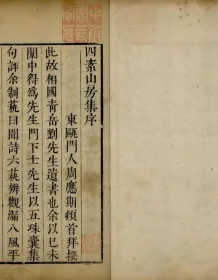 四素山房集序
東甌門人周應期頓首拜撰
此故相國青岳劉先生遺書也余以己未
闈中得為先生門下士先生以五珠囊集
句評余制蓺曰聞詩六蓺辨觀漏八風平